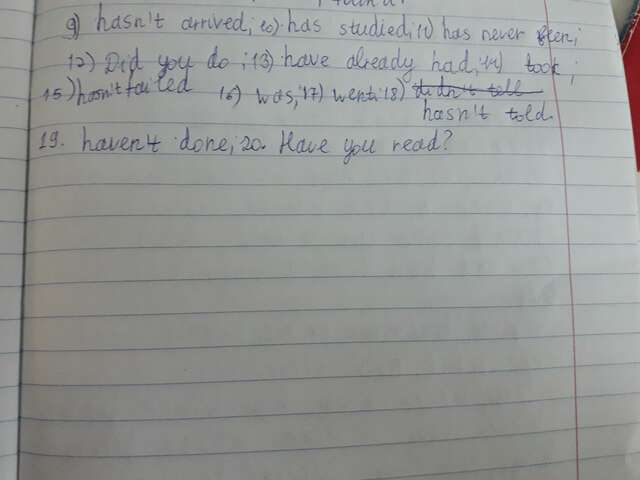 9) hasn't arrived; 10) has studied; 11) has never been;
12) Did you do; 13) have already had; 14) took;
15) hasn't failed 16) was; 17) went; 18) didn't tell
hasn't told
19. haven't done; 20. Have you read?